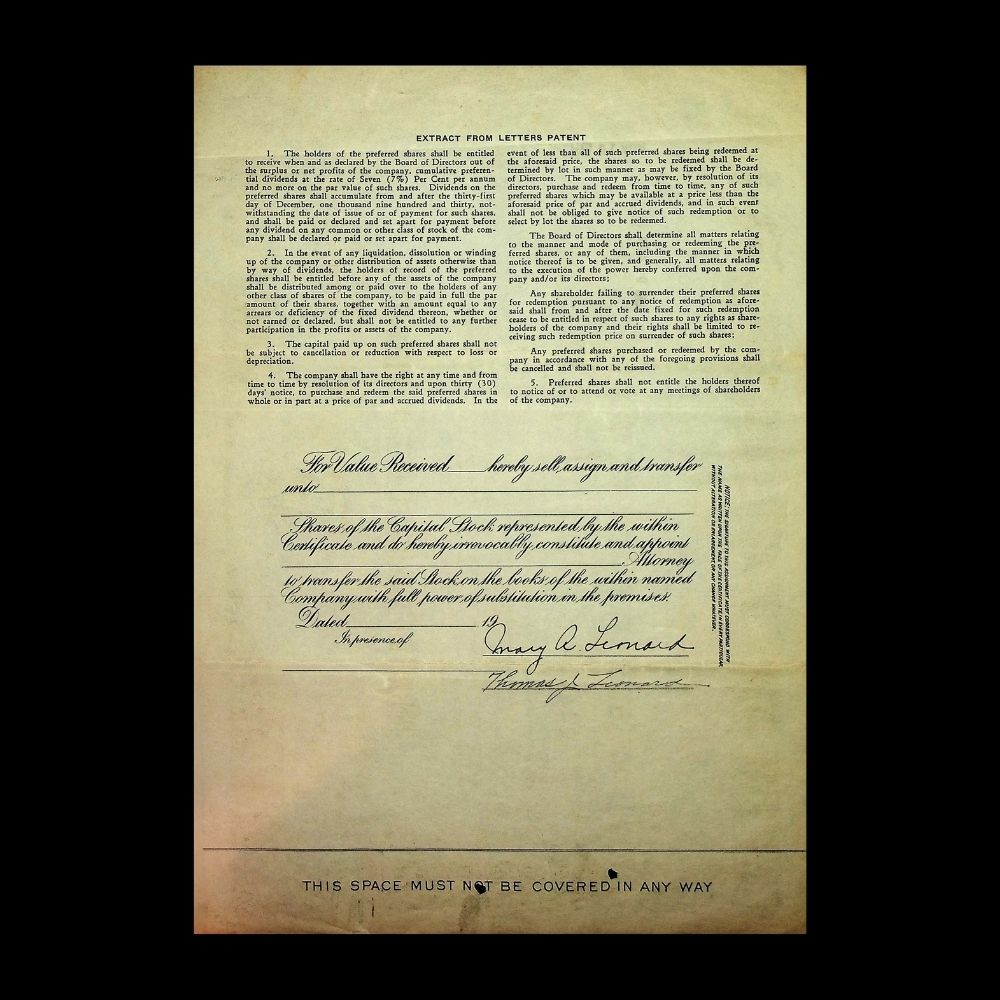 EXTRACT FROM LETTERS PATENT
1. The holders of the preferred shares shall be entitled
to receive when and as declared by the Board of Directors out of
the surplus or net profits of the company, cumulative preferen-
tial dividends at the rate of Seven (7%) Per Cent per annum
and no more on the par value of such shares. Dividends on the
preferred shares shall accumulate from and after the thirty-first
day of December, one thousand nine hundred and thirty, not-
withstanding the date of issue of or of payment for such shares,
and shall be paid or declared and set apart for payment before
any dividend on any common or other class of stock of the com-
pany shall be declared or paid or set apart for payment.
2. In the event of any liquidation, dissolution or winding
up of the company or other distribution of assets otherwise than
by way of dividends, the holders of record of the preferred
shares shall be entitled before any of the assets of the company
shall be distributed among or paid over to the holders of any
other class of shares of the company, to be paid in full the par
amount of their shares, together with an amount equal to any
arrears or deficiency of the fixed dividend thereon, whether or
not earned or declared, but shall not be entitled to any further
participation in the profits or assets of the company.
3. The capital paid up on such preferred shares shall not
be subject to cancellation or reduction with respect to loss or
depreciation.
4. The company shall have the right at any time and from
time to time by resolution of its directors and upon thirty (30)
days' notice, to purchase and redeem the said preferred shares in
whole or in part at a price of par and accrued dividends. In the
event of less than all of such preferred shares being redeemed at
the aforesaid price, the shares so to be redeemed shall be de-
termined by lot in such manner as may be fixed by the Board
of Directors. The company may, however, by resolution of its
directors, purchase and redeem from time to time, any of such
preferred shares which may be available at a price less than the
aforesaid price of par and accrued dividends, and in such event
shall not be obliged to give notice of such redemption or to
select by lot the shares so to be redeemed.
The Board of Directors shall determine all matters relating
to the manner and mode of purchasing or redeeming the pre-
ferred shares, or any of them, including the manner in which
notice thereof is to be given, and generally, all matters relating
to the execution of the power hereby conferred upon the com-
pany and/or its directors;
Any shareholder failing to surrender their preferred shares
for redemption pursuant to any notice of redemption as afore-
said shall from and after the date fixed for such redemption
cease to be entitled in respect of such shares to any rights as share-
holders of the company and their rights shall be limited to re-
ceiving such redemption price on surrender of such shares;
Any preferred shares purchased or redeemed by the com-
pany in accordance with any of the foregoing provisions shall
be cancelled and shall not be reissued.
5. Preferred shares shall not entitle the holders thereof
to notice of or to attend or vote at any meetings of shareholders
of the company.
For Value Received hereby sell, assign and transfer
unto
Shares of the Capital Stock represented by the within
Certificate and do hereby irrevocably constitute and appoint
Attorney
to transfer the said Stock on the books of the within named
Company with full power of substitution in the premises.
Dated 19
In presence of
Mary A Leonard
Thomas J Leonard
NOTICE: THE SIGNATURE TO THIS ASSIGNMENT MUST CORRESPOND WITH
THE NAME AS WRITTEN UPON THE FACE OF THE CERTIFICATE IN EVERY PARTICULAR,
WITHOUT ALTERATION OR ENLARGEMENT, OR ANY CHANGE WHATEVER.
THIS SPACE MUST NOT BE COVERED IN ANY WAY